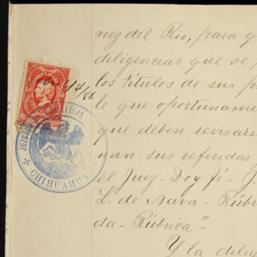 nez del Rio, para q
diligencias que se p
los titulos de sus p
le que oportuname
que deben revisars
nan sus referidas
el Juez- Doy fé- J.
L. de Nava- Rúbri
da- Rúbrica"-
Y la dilig
CHIHUAHUA